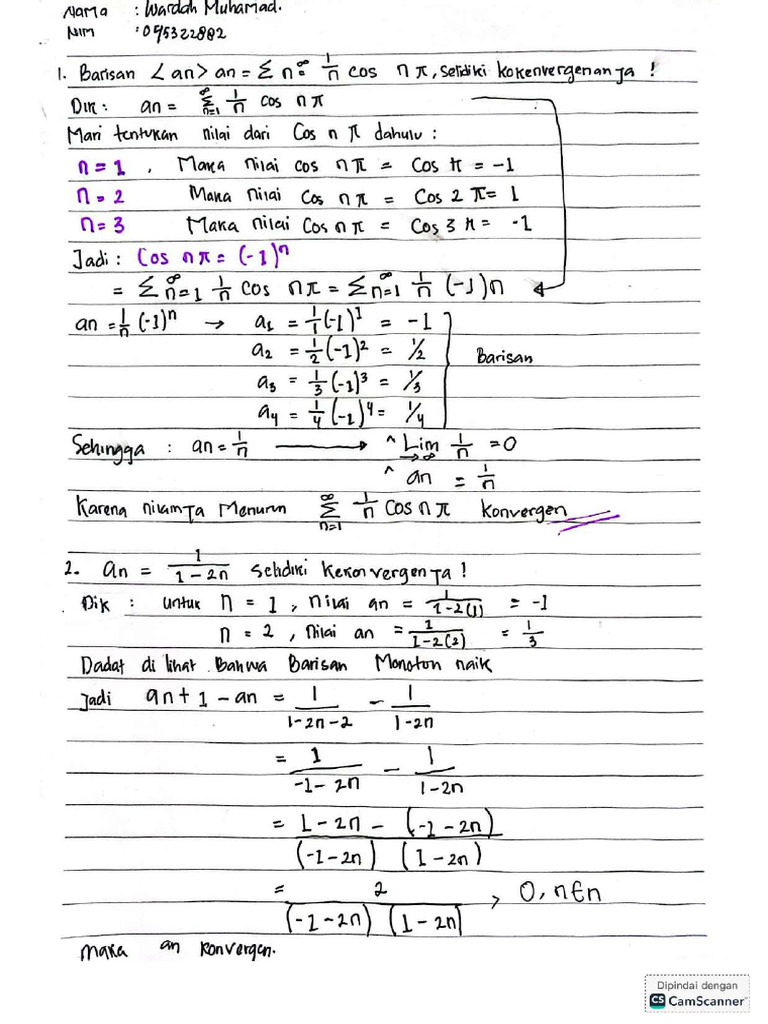 Nama : Wardah Muhamad.
NIM : 045322882
1. Barisan <an> an = Σ n = 1/n cos nπ, selidiki kokenvergenanja !
Dik : an = Σ n=1 1/n cos nπ
Mari tentukan nilai dari Cos nπ dahulu :
n = 1 , Maka nilai cos nπ = Cos π = -1
n = 2 Maka nilai Cos nπ = Cos 2π = 1
n = 3 Maka nilai Cos nπ = Cos 3π = -1
Jadi : Cos nπ = (-1)ⁿ
= Σ∞n=1 1/n cos nπ = Σ∞n=1 1/n (-1)n
an = 1/n (-1)ⁿ → a₁ = 1/1 (-1)¹ = -1
a₂ = 1/2 (-1)² = 1/2
Barisan
a₃ = 1/3 (-1)³ = 1/3
a₄ = 1/4 (-1)⁴ = 1/4
Sehingga : an = 1/n → ^ Lim →∞ 1/n = 0
^ an = 1/n
Karena nilainya Menurun ∞Σn=1 1/n Cos nπ konvergen
2. an = 1/(1-2n) selidiki kekonvergenya !
Dik : untuk n = 1 , nilai an = 1/(1-2(1)) = -1
n = 2 , nilai an = 1/(1-2(2)) = 1/3
Dadat di lihat Bahwa Barisan Monoton naik
Jadi an+1 - an = 1/(1-2n-2) - 1/(1-2n)
= 1/(-1-2n) - 1/(1-2n)
= 1-2n - (-1-2n) / (-1-2n) (1-2n)
= 2 / (-1-2n) (1-2n) > 0, n∈n
maka an konvergen.
Dipindai dengan
CS CamScanner